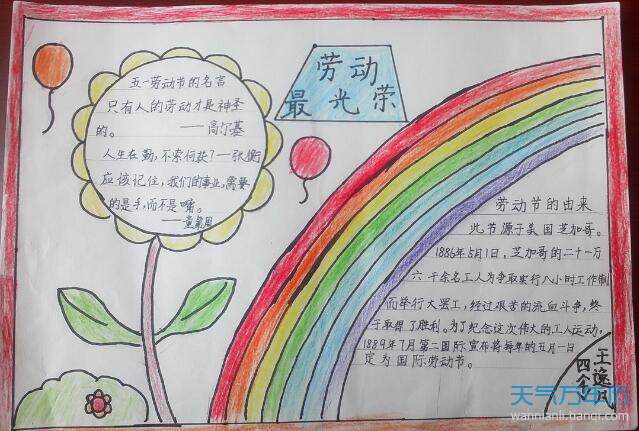 劳动
最光荣
五一劳动节的名言
只有人的劳动才是神圣
的。 ——高尔基
人生在勤，不索何获？—张衡
应该记住，我们的事业，需要
的是手，而不是嘴。
——童第周
劳动节的由来
此节源于美国芝加哥。
1886年5月1日，芝加哥的二十一万
六千余名工人为争取实行八小时工作制
而举行大罢工，经过艰苦的流血斗争，终
于取得了胜利。为了纪念这次伟大的工人运动，
1889年7月第二国际宣布将每年的五月一日
定为国际劳动节。
王逸
四
天气万年历
wannianli.tianqi.com